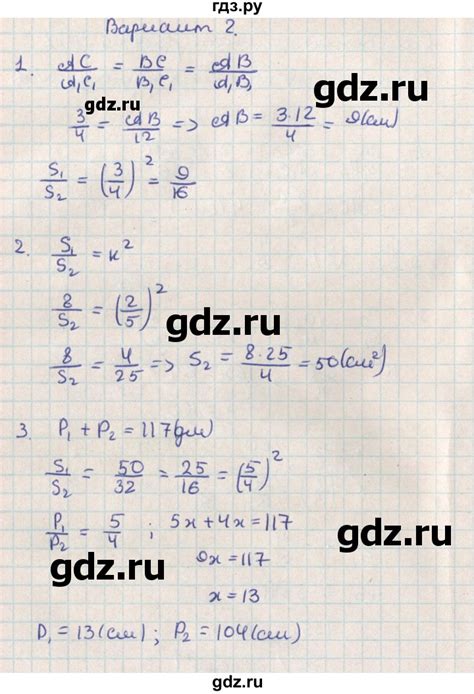 гдз.ру
Вариант 2.
1. AC/A₁C₁ = BC/B₁C₁ = AB/A₁B₁
gdz.ru
3/4 = AB/12 => AB = 3·12/4 = 9(см)
S₁/S₂ = (3/4)² = 9/16
2. S₁/S₂ = к²
8/S₂ = (2/5)²
gdz.ru
8/S₂ = 4/25 => S₂ = 8·25/4 = 50(см²)
3. P₁ + P₂ = 117(дм)
S₁/S₂ = 50/32 = 25/16 = (5/4)²
P₁/P₂ = 5/4 ; 5x + 4x = 117
gdz.ru
9x = 117
gdz.ru
x = 13
P₁ = 13(см); P₂ = 104(см)
gdz.ru